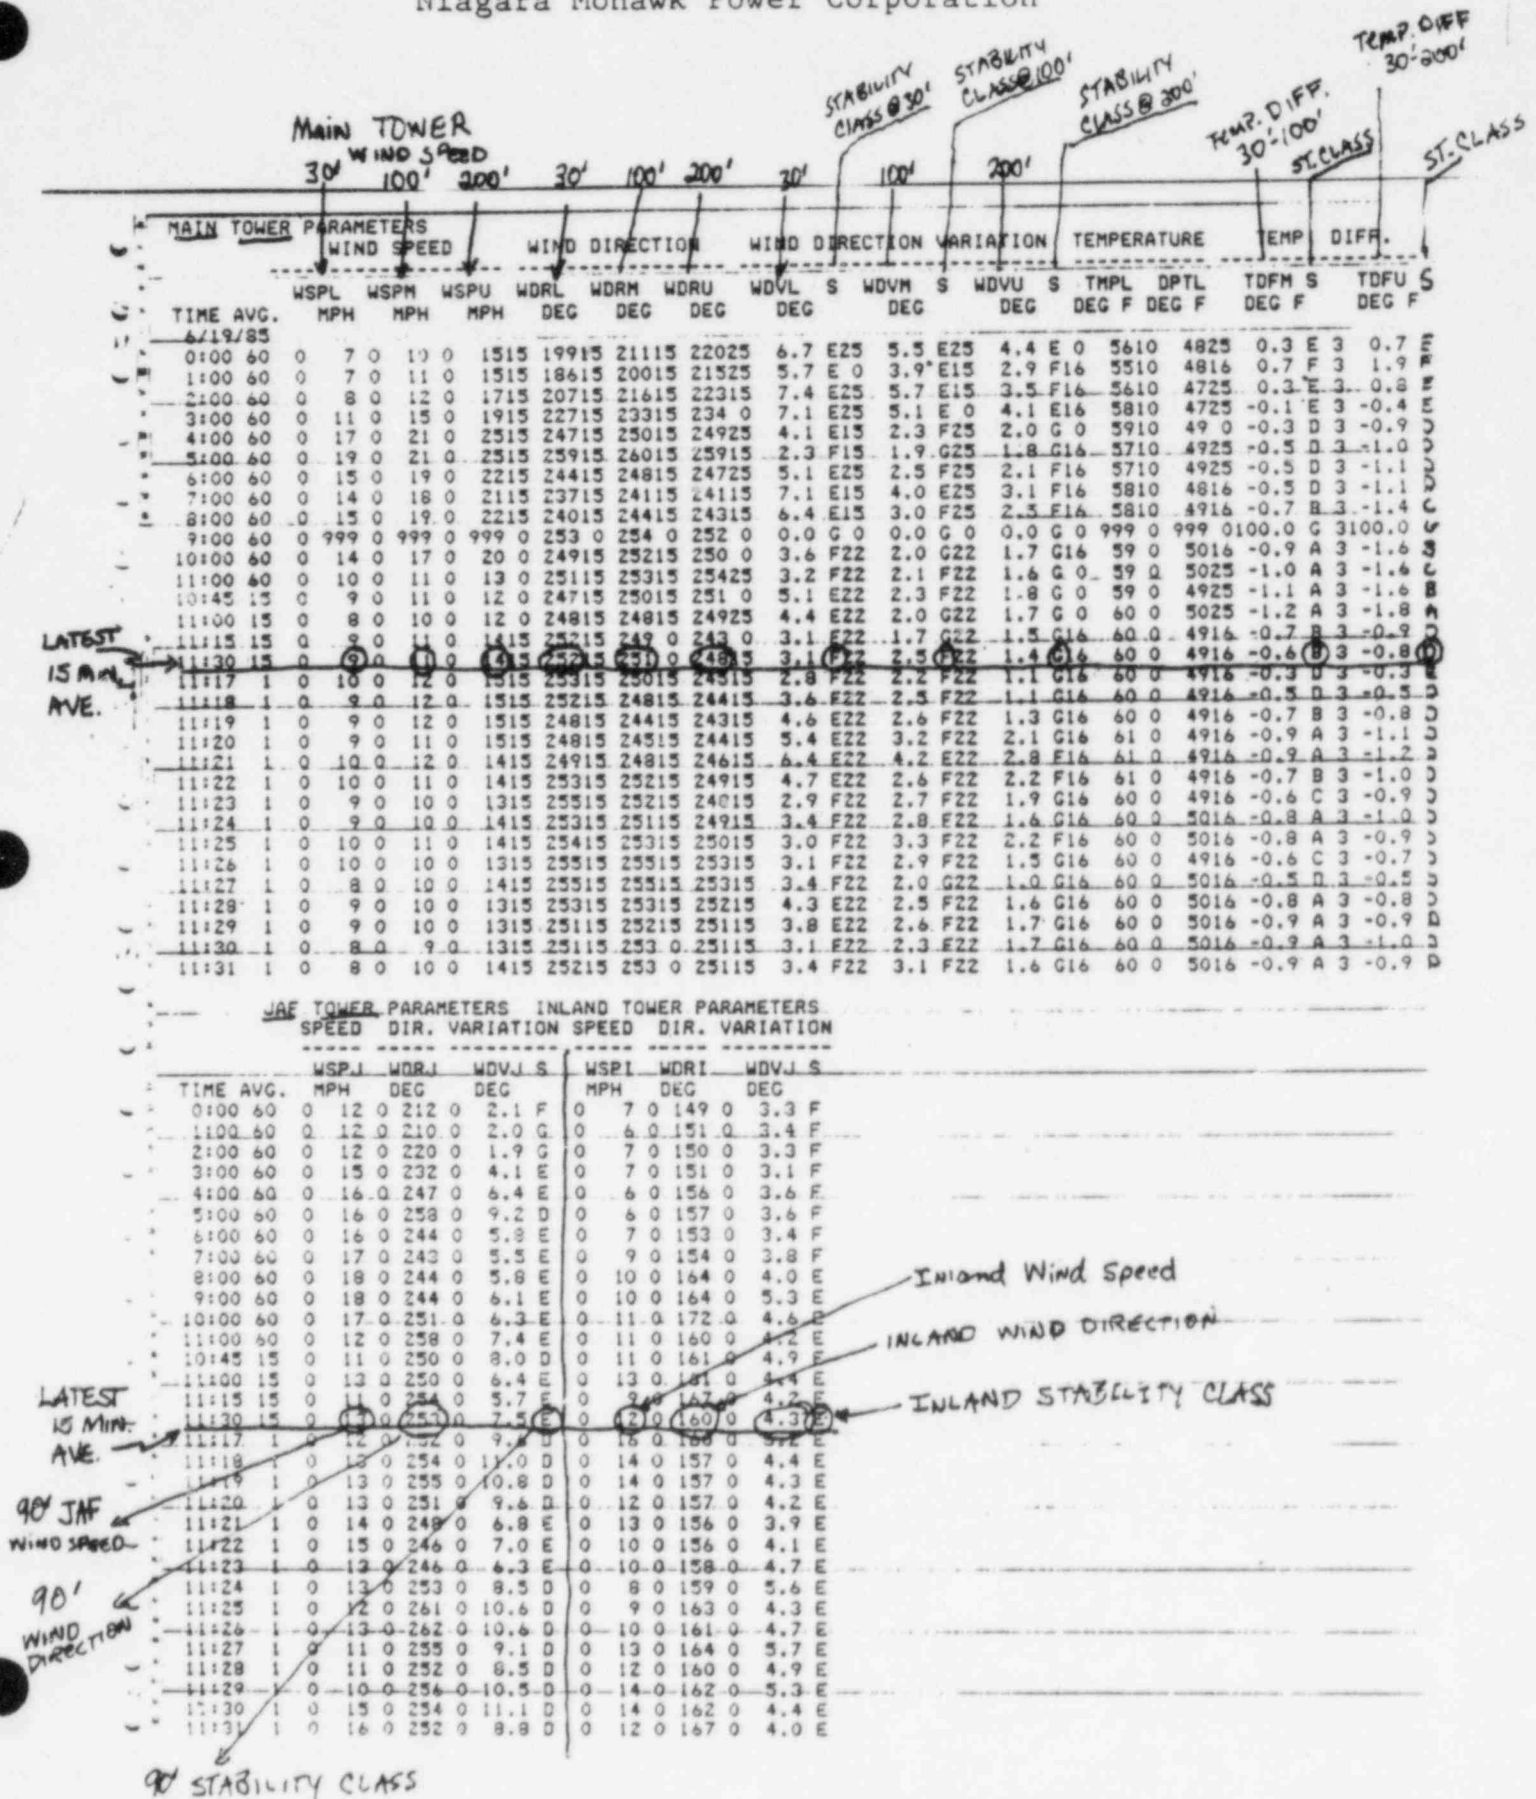 Niagara Mohawk Power Corporation
STABILITY CLASS @ 30'
STABILITY CLASS @ 100'
STABILITY CLASS @ 200'
TEMP. DIFF. 30'-100'
ST. CLASS
TEMP. DIFF 30'-200'
ST. CLASS
Main TOWER
WIND SPEED
30' 100' 200' 30' 100' 200' 30' 100' 200'
MAIN TOWER PARAMETERS
WIND SPEED WIND DIRECTION WIND DIRECTION VARIATION TEMPERATURE TEMP DIFF.
WSPL WSPM WSPU WDRL WDRM WDRU WDVL S WDVM S WDVU S TMPL DPTL TDFM S TDFU S
TIME AVG. MPH MPH MPH DEG DEG DEG DEG DEG DEG DEG F DEG F DEG F DEG F
6/19/85
0:00 60 0 7 0 10 0 1515 19915 21115 22025 6.7 E25 5.5 E25 4.4 E 0 5610 4825 0.3 E 3 0.7 E
1:00 60 0 7 0 11 0 1515 18615 20015 21525 5.7 E 0 3.9 E15 2.9 F16 5510 4816 0.7 F 3 1.9 F
2:00 60 0 8 0 12 0 1715 20715 21615 22315 7.4 E25 5.7 E15 3.5 F16 5610 4725 0.3 E 3 0.8 E
3:00 60 0 11 0 15 0 1915 22715 23315 234 0 7.1 E25 5.1 E 0 4.1 E16 5810 4725 -0.1 E 3 -0.4 E
4:00 60 0 17 0 21 0 2515 24715 25015 24925 4.1 E15 2.3 F25 2.0 G 0 5910 49 0 -0.3 D 3 -0.9 D
5:00 60 0 19 0 21 0 2515 25915 26015 25915 2.3 F15 1.9 G25 1.8 G16 5710 4925 -0.5 D 3 -1.0 D
6:00 60 0 15 0 19 0 2215 24415 24815 24725 5.1 E25 2.5 F25 2.1 F16 5710 4925 -0.5 D 3 -1.1 D
7:00 60 0 14 0 18 0 2115 23715 24115 24115 7.1 E15 4.0 E25 3.1 F16 5810 4816 -0.5 D 3 -1.1 D
8:00 60 0 15 0 19 0 2215 24015 24415 24315 6.4 E15 3.0 F25 2.5 F16 5810 4916 -0.7 B 3 -1.4 C
9:00 60 0 999 0 999 0 999 0 253 0 254 0 252 0 0.0 G 0 0.0 G 0 0.0 G 0 999 0 999 0100.0 G 3100.0 G
10:00 60 0 14 0 17 0 20 0 24915 25215 250 0 3.6 F22 2.0 G22 1.7 G16 59 0 5016 -0.9 A 3 -1.6 B
11:00 60 0 10 0 11 0 13 0 25115 25315 25425 3.2 F22 2.1 F22 1.6 G 0 59 0 5025 -1.0 A 3 -1.6 C
10:45 15 0 9 0 11 0 12 0 24715 25015 251 0 5.1 E22 2.3 F22 1.8 G 0 59 0 4925 -1.1 A 3 -1.6 B
11:00 15 0 8 0 10 0 12 0 24815 24815 24925 4.4 E22 2.0 G22 1.7 G 0 60 0 5025 -1.2 A 3 -1.8 A
LATEST 11:15 15 0 9 0 11 0 1415 25215 249 0 243 0 3.1 E22 1.7 G22 1.5 G16 60 0 4916 -0.7 B 3 -0.9 D
15 MIN. 11:30 15 0 9 0 11 0 1415 25215 251 0 24815 3.1 F22 2.5 F22 1.4 G16 60 0 4916 -0.6 B 3 -0.8 D
AVE. 11:17 1 0 10 0 12 0 1515 25315 25015 24515 2.8 F22 2.2 F22 1.1 G16 60 0 4916 -0.3 D 3 -0.3 E
11:18 1 0 9 0 12 0 1515 25215 24815 24415 3.6 F22 2.5 F22 1.1 G16 60 0 4916 -0.5 D 3 -0.5 D
11:19 1 0 9 0 12 0 1515 24815 24415 24315 4.6 E22 2.6 F22 1.3 G16 60 0 4916 -0.7 B 3 -0.8 D
11:20 1 0 9 0 11 0 1515 24815 24515 24415 5.4 E22 3.2 F22 2.1 G16 61 0 4916 -0.9 A 3 -1.1 D
11:21 1 0 10 0 12 0 1415 24915 24815 24615 6.4 E22 4.2 E22 2.8 F16 61 0 4916 -0.9 A 3 -1.2 D
11:22 1 0 10 0 11 0 1415 25315 25215 24915 4.7 E22 2.6 F22 2.2 F16 61 0 4916 -0.7 B 3 -1.0 D
11:23 1 0 9 0 10 0 1315 25515 25215 24815 2.9 F22 2.7 F22 1.9 G16 60 0 4916 -0.6 C 3 -0.9 D
11:24 1 0 9 0 10 0 1415 25315 25115 24915 3.4 F22 2.8 E22 1.6 G16 60 0 5016 -0.8 A 3 -1.0 D
11:25 1 0 10 0 11 0 1415 25415 25315 25015 3.0 F22 3.3 F22 2.2 F16 60 0 5016 -0.8 A 3 -0.9 D
11:26 1 0 10 0 10 0 1315 25515 25515 25315 3.1 F22 2.9 F22 1.5 G16 60 0 4916 -0.6 C 3 -0.7 D
11:27 1 0 8 0 10 0 1415 25515 25515 25315 3.4 F22 2.0 G22 1.0 G16 60 0 5016 -0.5 D 3 -0.5 D
11:28 1 0 9 0 10 0 1315 25315 25315 25215 4.3 E22 2.5 F22 1.6 G16 60 0 5016 -0.8 A 3 -0.8 D
11:29 1 0 9 0 10 0 1315 25115 25215 25115 3.8 E22 2.6 F22 1.7 G16 60 0 5016 -0.9 A 3 -0.9 D
11:30 1 0 8 0 9 0 1315 25115 253 0 25115 3.1 F22 2.3 E22 1.7 G16 60 0 5016 -0.9 A 3 -1.0 D
11:31 1 0 8 0 10 0 1415 25215 253 0 25115 3.4 F22 3.1 F22 1.6 G16 60 0 5016 -0.9 A 3 -0.9 D
JAF TOWER PARAMETERS INLAND TOWER PARAMETERS
SPEED DIR. VARIATION SPEED DIR. VARIATION
WSPJ WDRJ WDVJ S WSPI WDRI WDVJ S
TIME AVG. MPH DEG DEG MPH DEG DEG
0:00 60 0 12 0 212 0 2.1 F 0 7 0 149 0 3.3 F
1:00 60 0 12 0 210 0 2.0 G 0 6 0 151 0 3.4 F
2:00 60 0 12 0 220 0 1.9 G 0 7 0 150 0 3.3 F
3:00 60 0 15 0 232 0 4.1 E 0 7 0 151 0 3.1 F
4:00 60 0 16 0 247 0 6.4 E 0 6 0 156 0 3.6 F
5:00 60 0 16 0 258 0 9.2 D 0 6 0 157 0 3.6 F
6:00 60 0 16 0 244 0 5.8 E 0 7 0 153 0 3.4 F
7:00 60 0 17 0 243 0 5.5 E 0 9 0 154 0 3.8 F
8:00 60 0 18 0 244 0 5.8 E 0 10 0 164 0 4.0 E
Inland Wind Speed
9:00 60 0 18 0 244 0 6.1 E 0 10 0 164 0 5.3 E
10:00 60 0 17 0 251 0 6.3 E 0 11 0 172 0 4.6 E
INLAND WIND DIRECTION
11:00 60 0 12 0 258 0 7.4 E 0 11 0 160 0 4.2 E
10:45 15 0 11 0 250 0 8.0 D 0 11 0 161 0 4.9 E
11:00 15 0 13 0 250 0 6.4 E 0 13 0 161 0 4.4 E
LATEST 11:15 15 0 11 0 254 0 5.7 E 0 9 0 167 0 4.2 E
INLAND STABILITY CLASS
15 MIN. 11:30 15 0 13 0 253 0 7.5 E 0 12 0 160 0 4.3 E
AVE. 11:17 1 0 12 0 0 9. D 0 16 0 160 0 5.2 E
11:18 1 0 13 0 254 0 11.0 D 0 14 0 157 0 4.4 E
11:19 1 0 13 0 255 0 10.8 D 0 14 0 157 0 4.3 E
11:20 1 0 13 0 251 0 9.6 D 0 12 0 157 0 4.2 E
90' JAF
WIND SPEED
11:21 1 0 14 0 248 0 6.8 E 0 13 0 156 0 3.9 E
11:22 1 0 15 0 246 0 7.0 E 0 10 0 156 0 4.1 E
11:23 1 0 13 0 246 0 6.3 E 0 10 0 158 0 4.7 E
90'
WIND
DIRECTION
11:24 1 0 13 0 253 0 8.5 D 0 8 0 159 0 5.6 E
11:25 1 0 12 0 261 0 10.6 D 0 9 0 163 0 4.3 E
11:26 1 0 13 0 262 0 10.6 D 0 10 0 161 0 4.7 E
11:27 1 0 11 0 255 0 9.1 D 0 13 0 164 0 5.7 E
11:28 1 0 11 0 252 0 8.5 D 0 12 0 160 0 4.9 E
11:29 1 0 10 0 256 0 10.5 D 0 14 0 162 0 5.3 E
11:30 1 0 15 0 254 0 11.1 D 0 14 0 162 0 4.4 E
11:31 1 0 16 0 252 0 8.8 D 0 12 0 167 0 4.0 E
90' STABILITY CLASS